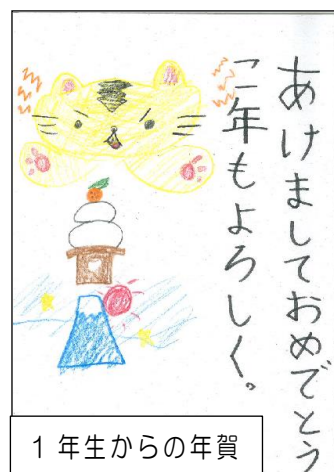 あけましておめでとう
こ年もよろしく。
1年生からの年賀